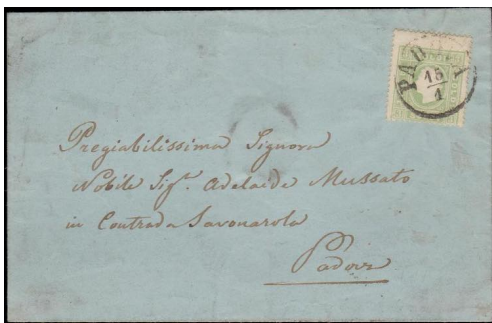 PADOVA
15
1
Pregiabilissima Signora
Nobile Sig.ª Adelaide Mussato
in Contrada Savonarola
Padova